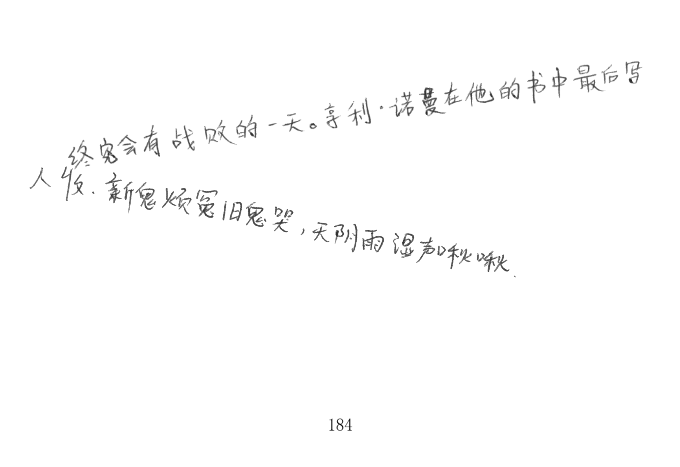 终究会有战败的一天。亨利·诺曼在他的书中最后写
人收.新鬼烦冤旧鬼哭,天阴雨湿声啾啾.
184